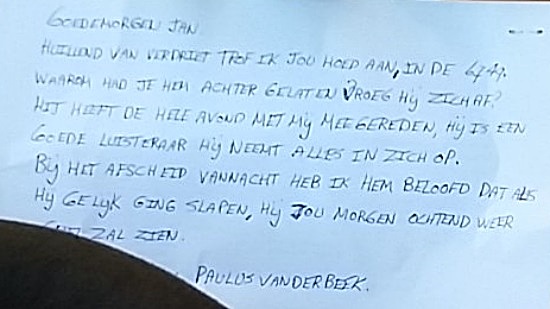 GOEDEMORGEN JAN
HUILEND VAN VERDRIET TROF IK JOU HOED AAN, IN DE 6747.
WAAROM HAD JE HEM ACHTER GELATEN VROEG HIJ ZICH AF?
HIJ HEEFT DE HELE AVOND MET MIJ MEEGEREDEN, HIJ IS EEN
GOEDE LUISTERAAR HIJ NEEMT ALLES IN ZICH OP.
BIJ HET AFSCHEID VANNACHT HEB IK HEM BELOOFD DAT ALS
HIJ GELIJK GING SLAPEN, HIJ JOU MORGEN OCHTEND WEER
ZAL ZIEN.
PAULUS VANDERBEEK.